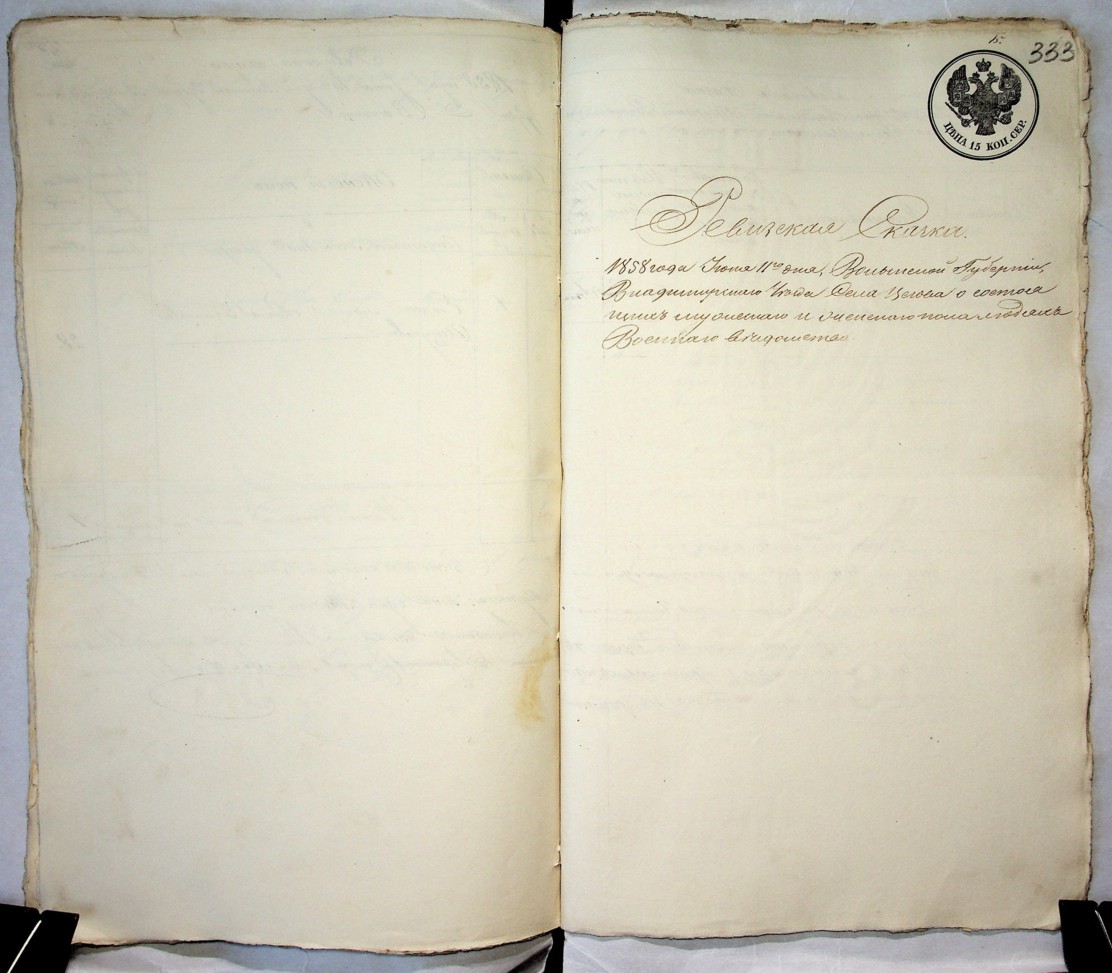 15.
333
ЦѢНА 15 КОП. СЕР.
Ревизская Сказка.
1858 года Іюня 11го дня, Волынской Губерніи,
Владимірскаго Уѣзда Села о состоя
щихъ мужескаго и женскаго пола людяхъ
Военнаго вѣдомства